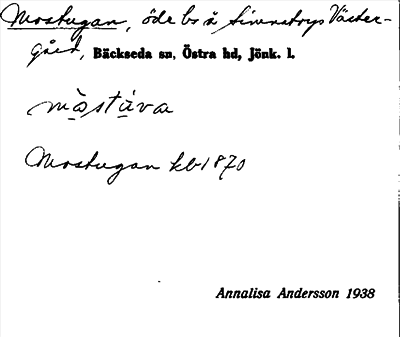 Mostugan, öde bs å Simnatorps Väster-
gård, Bäckseda sn, Östra hd, Jönk. l.
màstúva
Mostugan kb 1870
Annalisa Andersson 1938